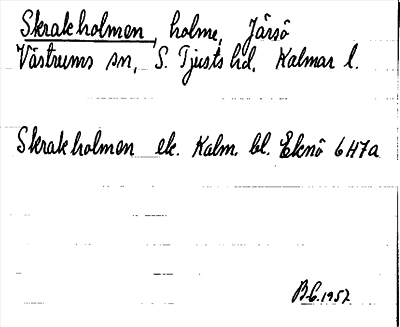 Skrakholmen, holme, Järsö
Västrums sn, S. Tjusts hd. Kalmar l.
Skrakholmen ek. Kalm. bl. Eknö 6H7a
B.G. 1957